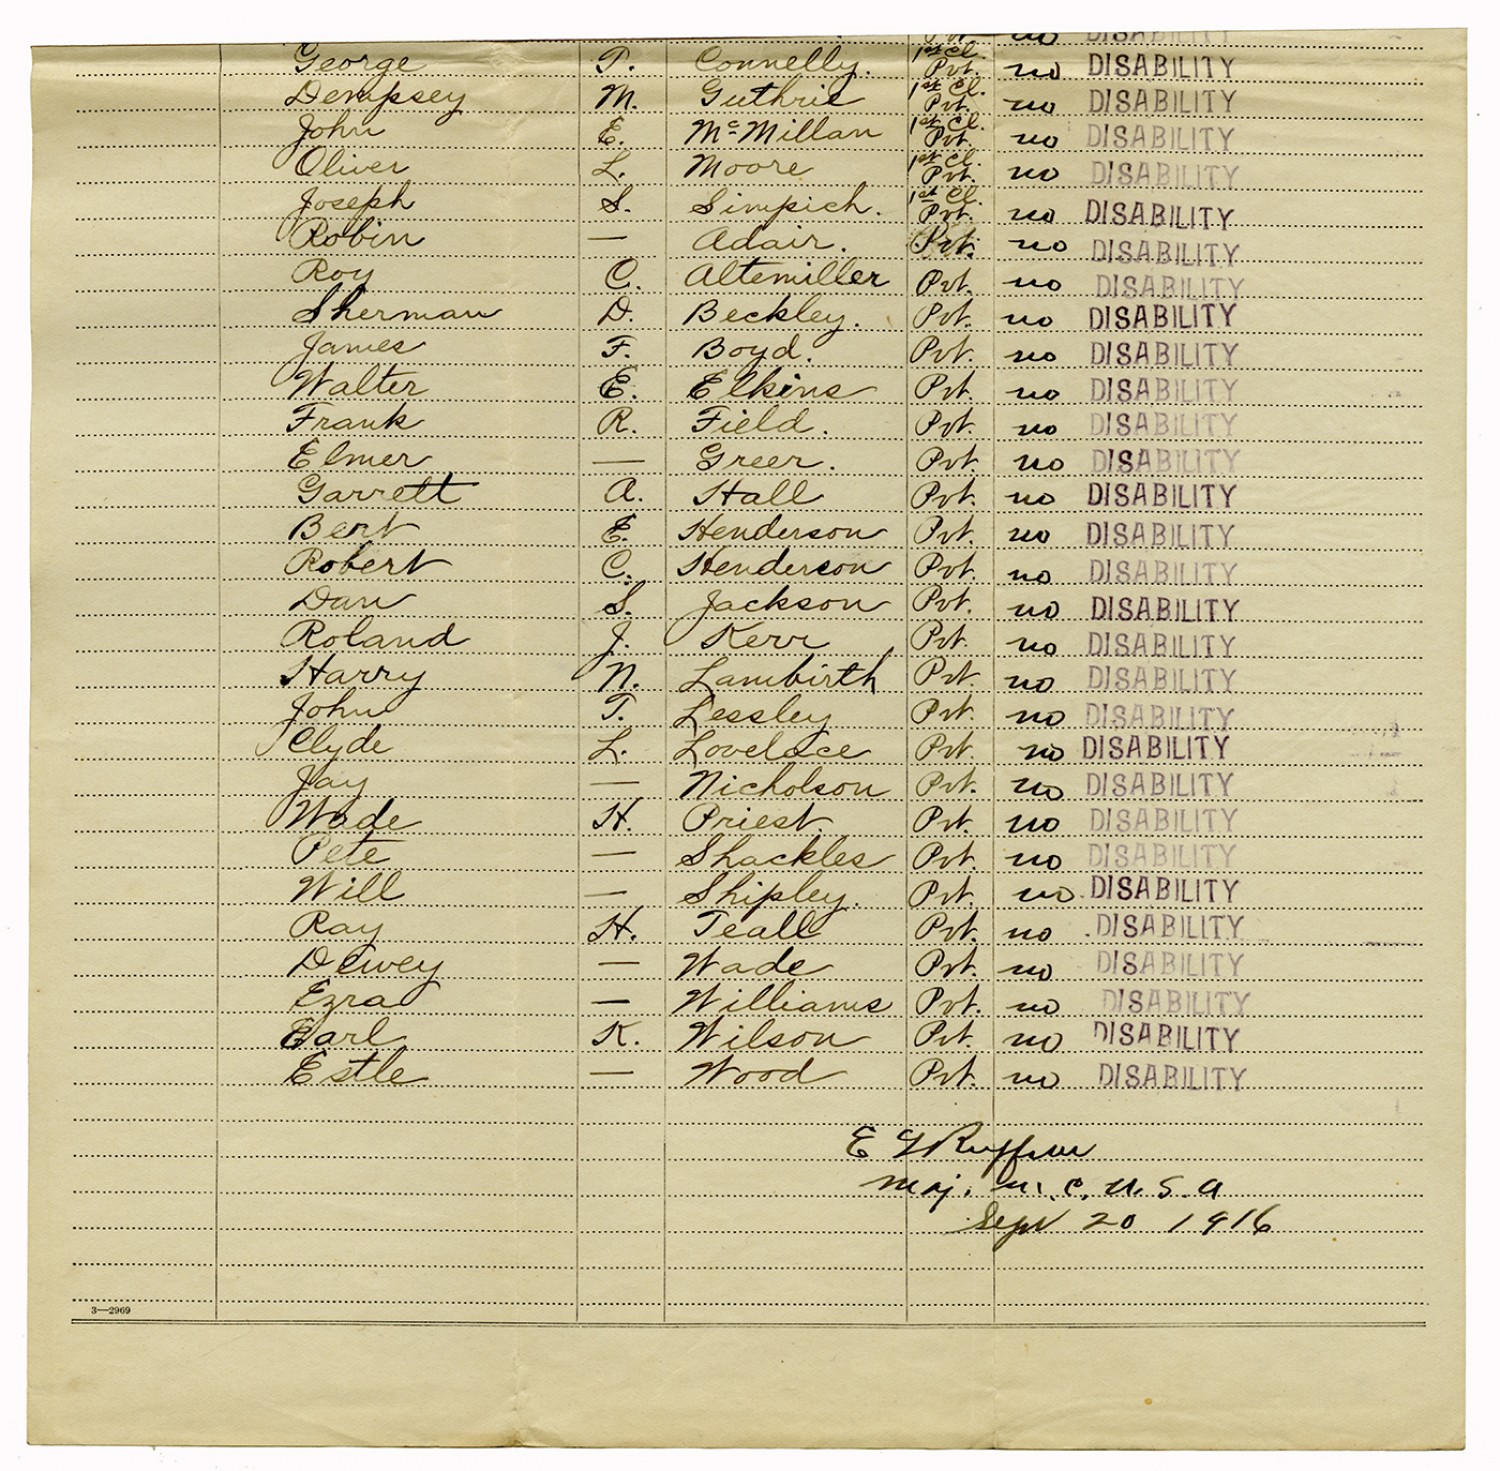 no DISABILITY
George T. Connelly. 1st Cl. Pvt. no DISABILITY
Dempsey M. Guthrie 1st Cl. Pvt. no DISABILITY
John E. McMillan 1st Cl. Pvt. no DISABILITY
Oliver L. Moore 1st Cl. Pvt. no DISABILITY
Joseph S. Simpich. 1st Cl. Pvt. no DISABILITY
Robin — Adair. Pvt. no DISABILITY
Roy C. Altemiller Pvt. no DISABILITY
Sherman D. Beckley. Pvt. no DISABILITY
James F. Boyd. Pvt. no DISABILITY
Walter E. Elkins Pvt. no DISABILITY
Frank R. Field. Pvt. no DISABILITY
Elmer — Greer. Pvt no DISABILITY
Garrett A. Hall Pvt. no DISABILITY
Bert E. Henderson Pvt. no DISABILITY
Robert C. Henderson Pvt. no DISABILITY
Dan S. Jackson Pvt. no DISABILITY
Roland J. Kerr Pvt. no DISABILITY
Harry N. Lambirth Pvt. no DISABILITY
John T. Lessley Pvt. no DISABILITY
Clyde L. Lovelace Pvt. no DISABILITY
Jay — Nicholson Pvt. no DISABILITY
Wade H. Priest. Pvt. no DISABILITY
Pete — Shackles Pvt. no DISABILITY
Will — Shipley. Pvt. no. DISABILITY
Ray H. Teall Pvt. no DISABILITY
Dewey — Wade Pvt. no DISABILITY
Ezra — Williams Pvt. no DISABILITY
Earl K. Wilson Pvt. no DISABILITY
Estle — Wood Pvt. no DISABILITY
E G Ruffner
Maj. M. C. U. S. A
Sept 20 1916
3—2969